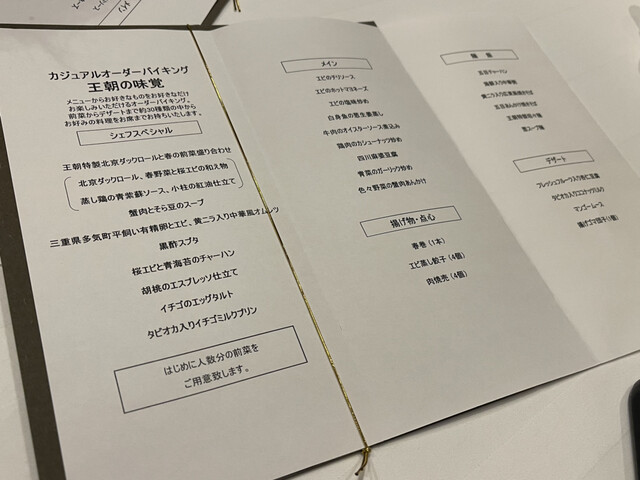 カジュアルオーダーバイキング
王朝の味覚
メニューからお好きなものをお好きなだけ
お楽しみいただけるオーダーバイキング。
前菜からデザートまで約30種類の中から
お好みの料理をお席までお持ちいたします。
シェフスペシャル
王朝特製北京ダックロールと春の前菜盛り合わせ
北京ダックロール、春野菜と桜エビの和え物
蒸し鶏の青紫蘇ソース、小柱の紅油仕立て
蟹肉とそら豆のスープ
三重県多気町平飼い有精卵とエビ、黄ニラ入り中華風オムレツ
黒酢スブタ
桜エビと青海苔のチャーハン
胡桃のエスプレッソ仕立て
イチゴのエッグタルト
タピオカ入りイチゴミルクプリン
はじめに人数分の前菜を
ご用意致します。
メイン
エビのチリソース
エビのホットマヨネーズ
エビの塩味炒め
白身魚の葱生姜蒸し
牛肉のオイスターソース煮込み
鶏肉のカシューナッツ炒め
四川麻婆豆腐
青菜のガーリック炒め
色々野菜の蟹肉あんかけ
揚げ物・点心
春巻(1本)
エビ蒸し餃子(4個)
肉焼売(4個)
麺・飯
五目チャーハン
デザート
フレッシュフルーツ入り杏仁豆腐
タピオカ入りココナッツミルク
マンゴームース
揚げゴマ団子(1個)